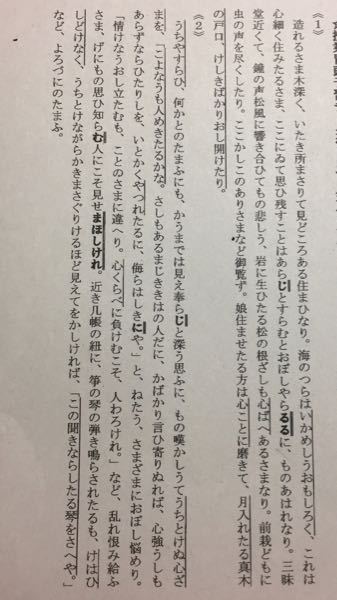 《1》
造れるさま木深く、いたき所まさりて見どころある住まひなり。海のつらはいかめしうおもしろく、これは
心細く住みたるさま、ここにゐて思ひ残すことはあらじとすらむとおぼしやらるるに、ものあはれなり。三昧
堂近くて、鐘の声松風に響き合ひてもの悲しう、岩に生ひたる松の根ざしも心ばへあるさまなり。前栽どもに
虫の声を尽くしたり。ここかしこのありさまなど御覧ず。娘住ませたる方は心ことに磨きて、月入れたる真木
の戸口、けしきばかりおし開けたり。
《2》
うちやすらひ、何かとのたまふにも、かうまでは見え奉らじと深う思ふに、もの嘆かしうてうちとけぬ心ざ
まを、「こよなうも人めきたるかな。さしもあるまじききはの人だに、かばかり言ひ寄りぬれば、心強うしも
あらずならひたりしを、いとかくやつれたるに、侮らはしきにや。」と、ねたう、さまざまにおぼし悩めり。
「情けなうおし立たむも、ことのさまに違へり。心くらべに負けむこそ、人わろけれ。」など、乱れ恨み給ふ
さま、げにもの思ひ知らむ人にこそ見せまほしけれ。近き几帳の紐に、箏の琴の弾き鳴らされたるも、けはひ
しどけなく、うちとけながらかきまさぐりけるほど見えてをかしければ、「この聞きならしたる琴をさへや。」
など、よろづにのたまふ。